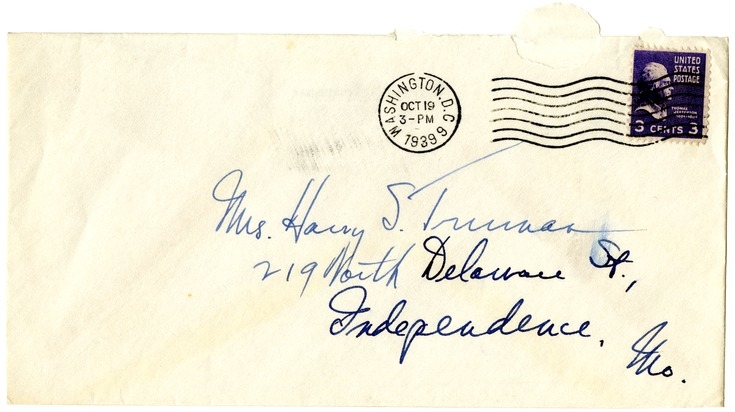 WASHINGTON, D.C.
OCT 19
3-PM
1939
9
UNITED
STATES
POSTAGE
THOMAS
JEFFERSON
3 CENTS 3
Mrs. Harry S. Truman
219 North Delaware St.,
Independence,
Mo.